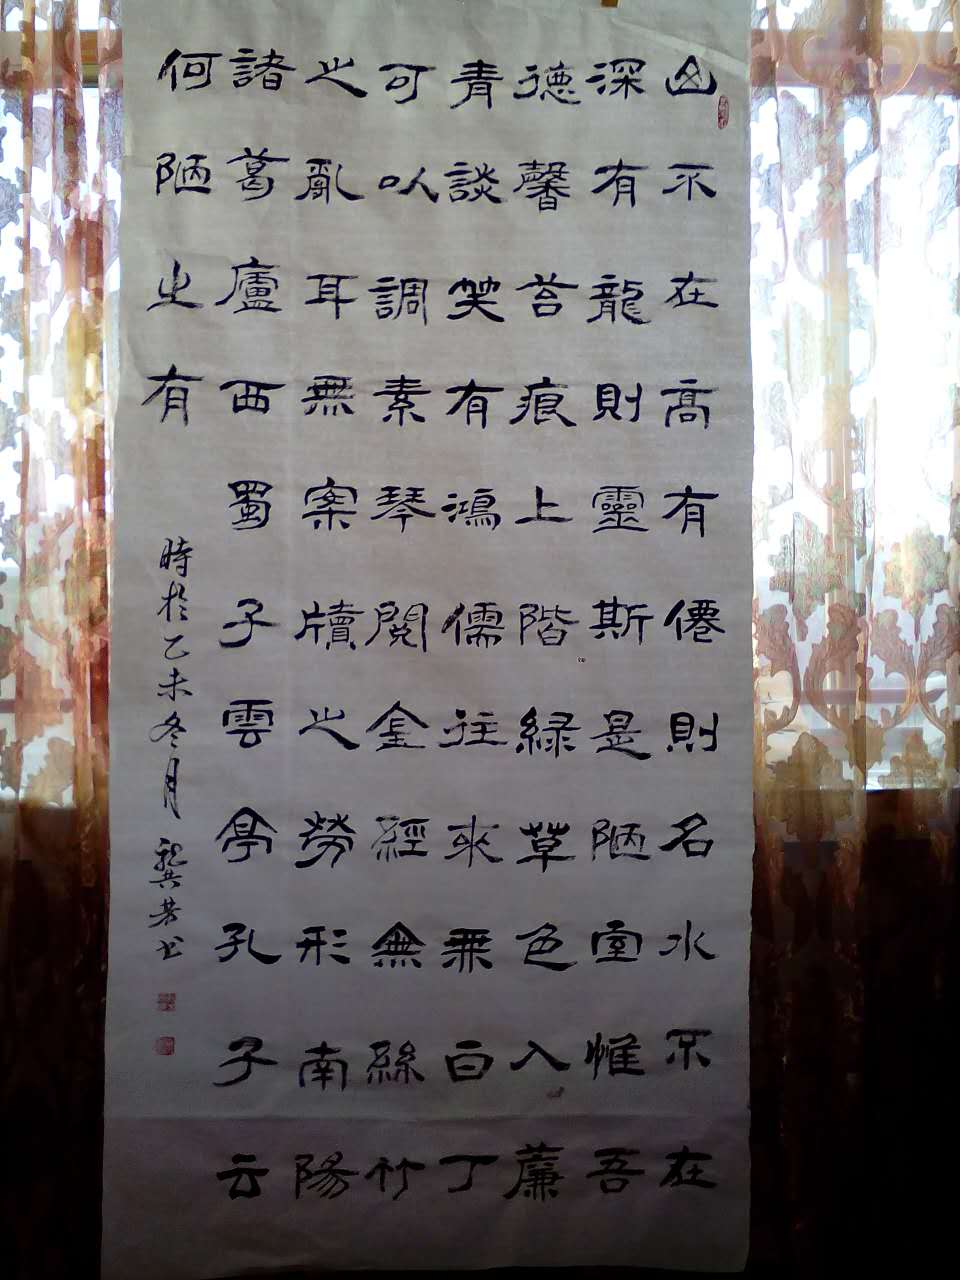 山不在高有僊則名水不在
深有龍則靈斯是陋室惟吾
德馨苔痕上階緑草色入薕
青談笑有鴻儒往來無白丁
可以調素琴閱金經無絲竹
之亂耳無案牘之勞形南陽
諸葛廬西蜀子雲亭孔子云
何陋之有
時於乙未冬月龔芳书